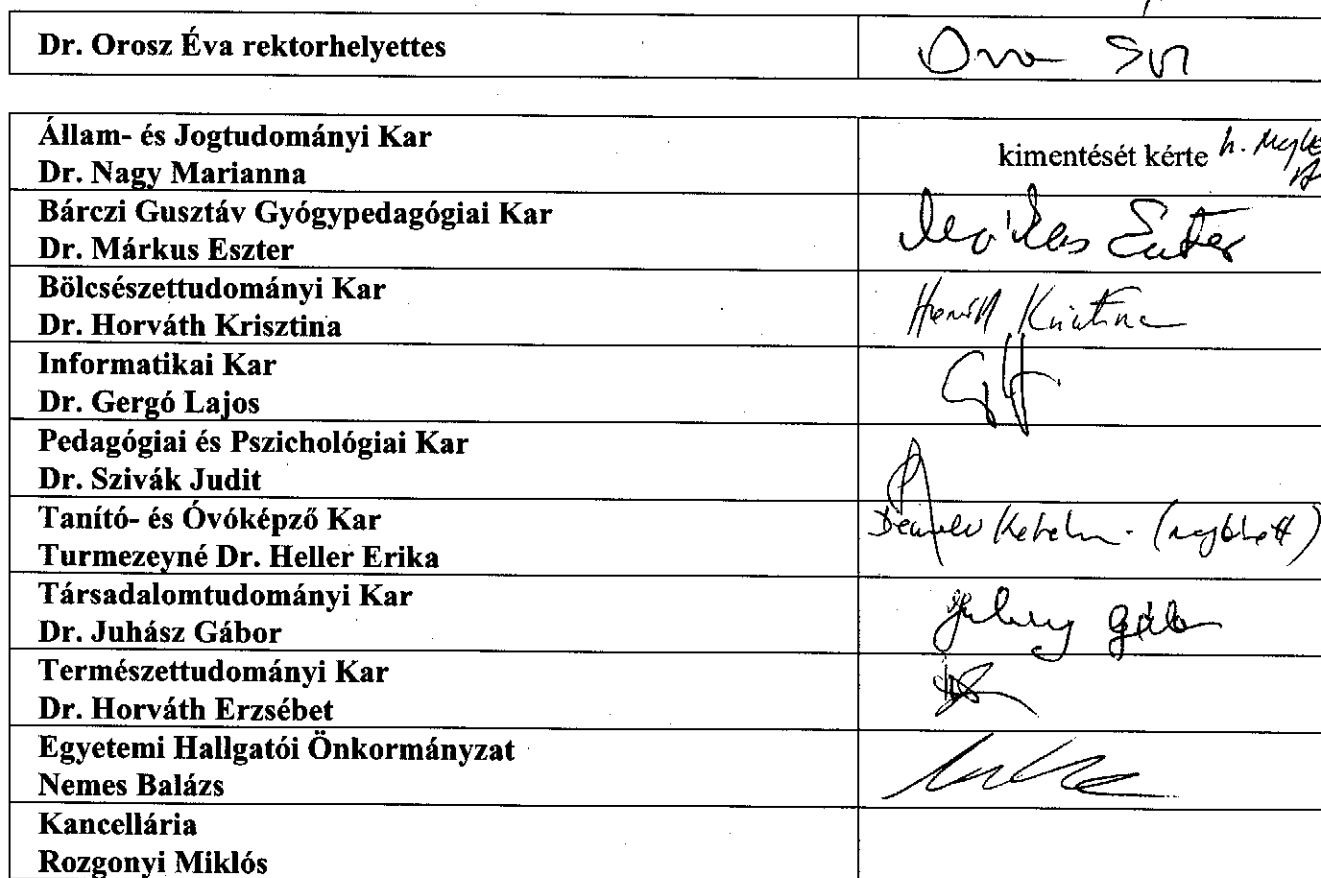 Dr. Orosz Éva rektorhelyettes
Állam- és Jogtudományi Kar
Dr. Nagy Marianna
kimentését kérte
Bárczi Gusztáv Gyógypedagógiai Kar
Dr. Márkus Eszter
Márkus Eszter
Bölcsészettudományi Kar
Dr. Horváth Krisztina
Horváth Krisztina
Informatikai Kar
Dr. Gergó Lajos
Pedagógiai és Pszichológiai Kar
Dr. Szivák Judit
Tanító- és Óvóképző Kar
Turmezeyné Dr. Heller Erika
Társadalomtudományi Kar
Dr. Juhász Gábor
Juhász Gábor
Természettudományi Kar
Dr. Horváth Erzsébet
Egyetemi Hallgatói Önkormányzat
Nemes Balázs
Kancellária
Rozgonyi Miklós